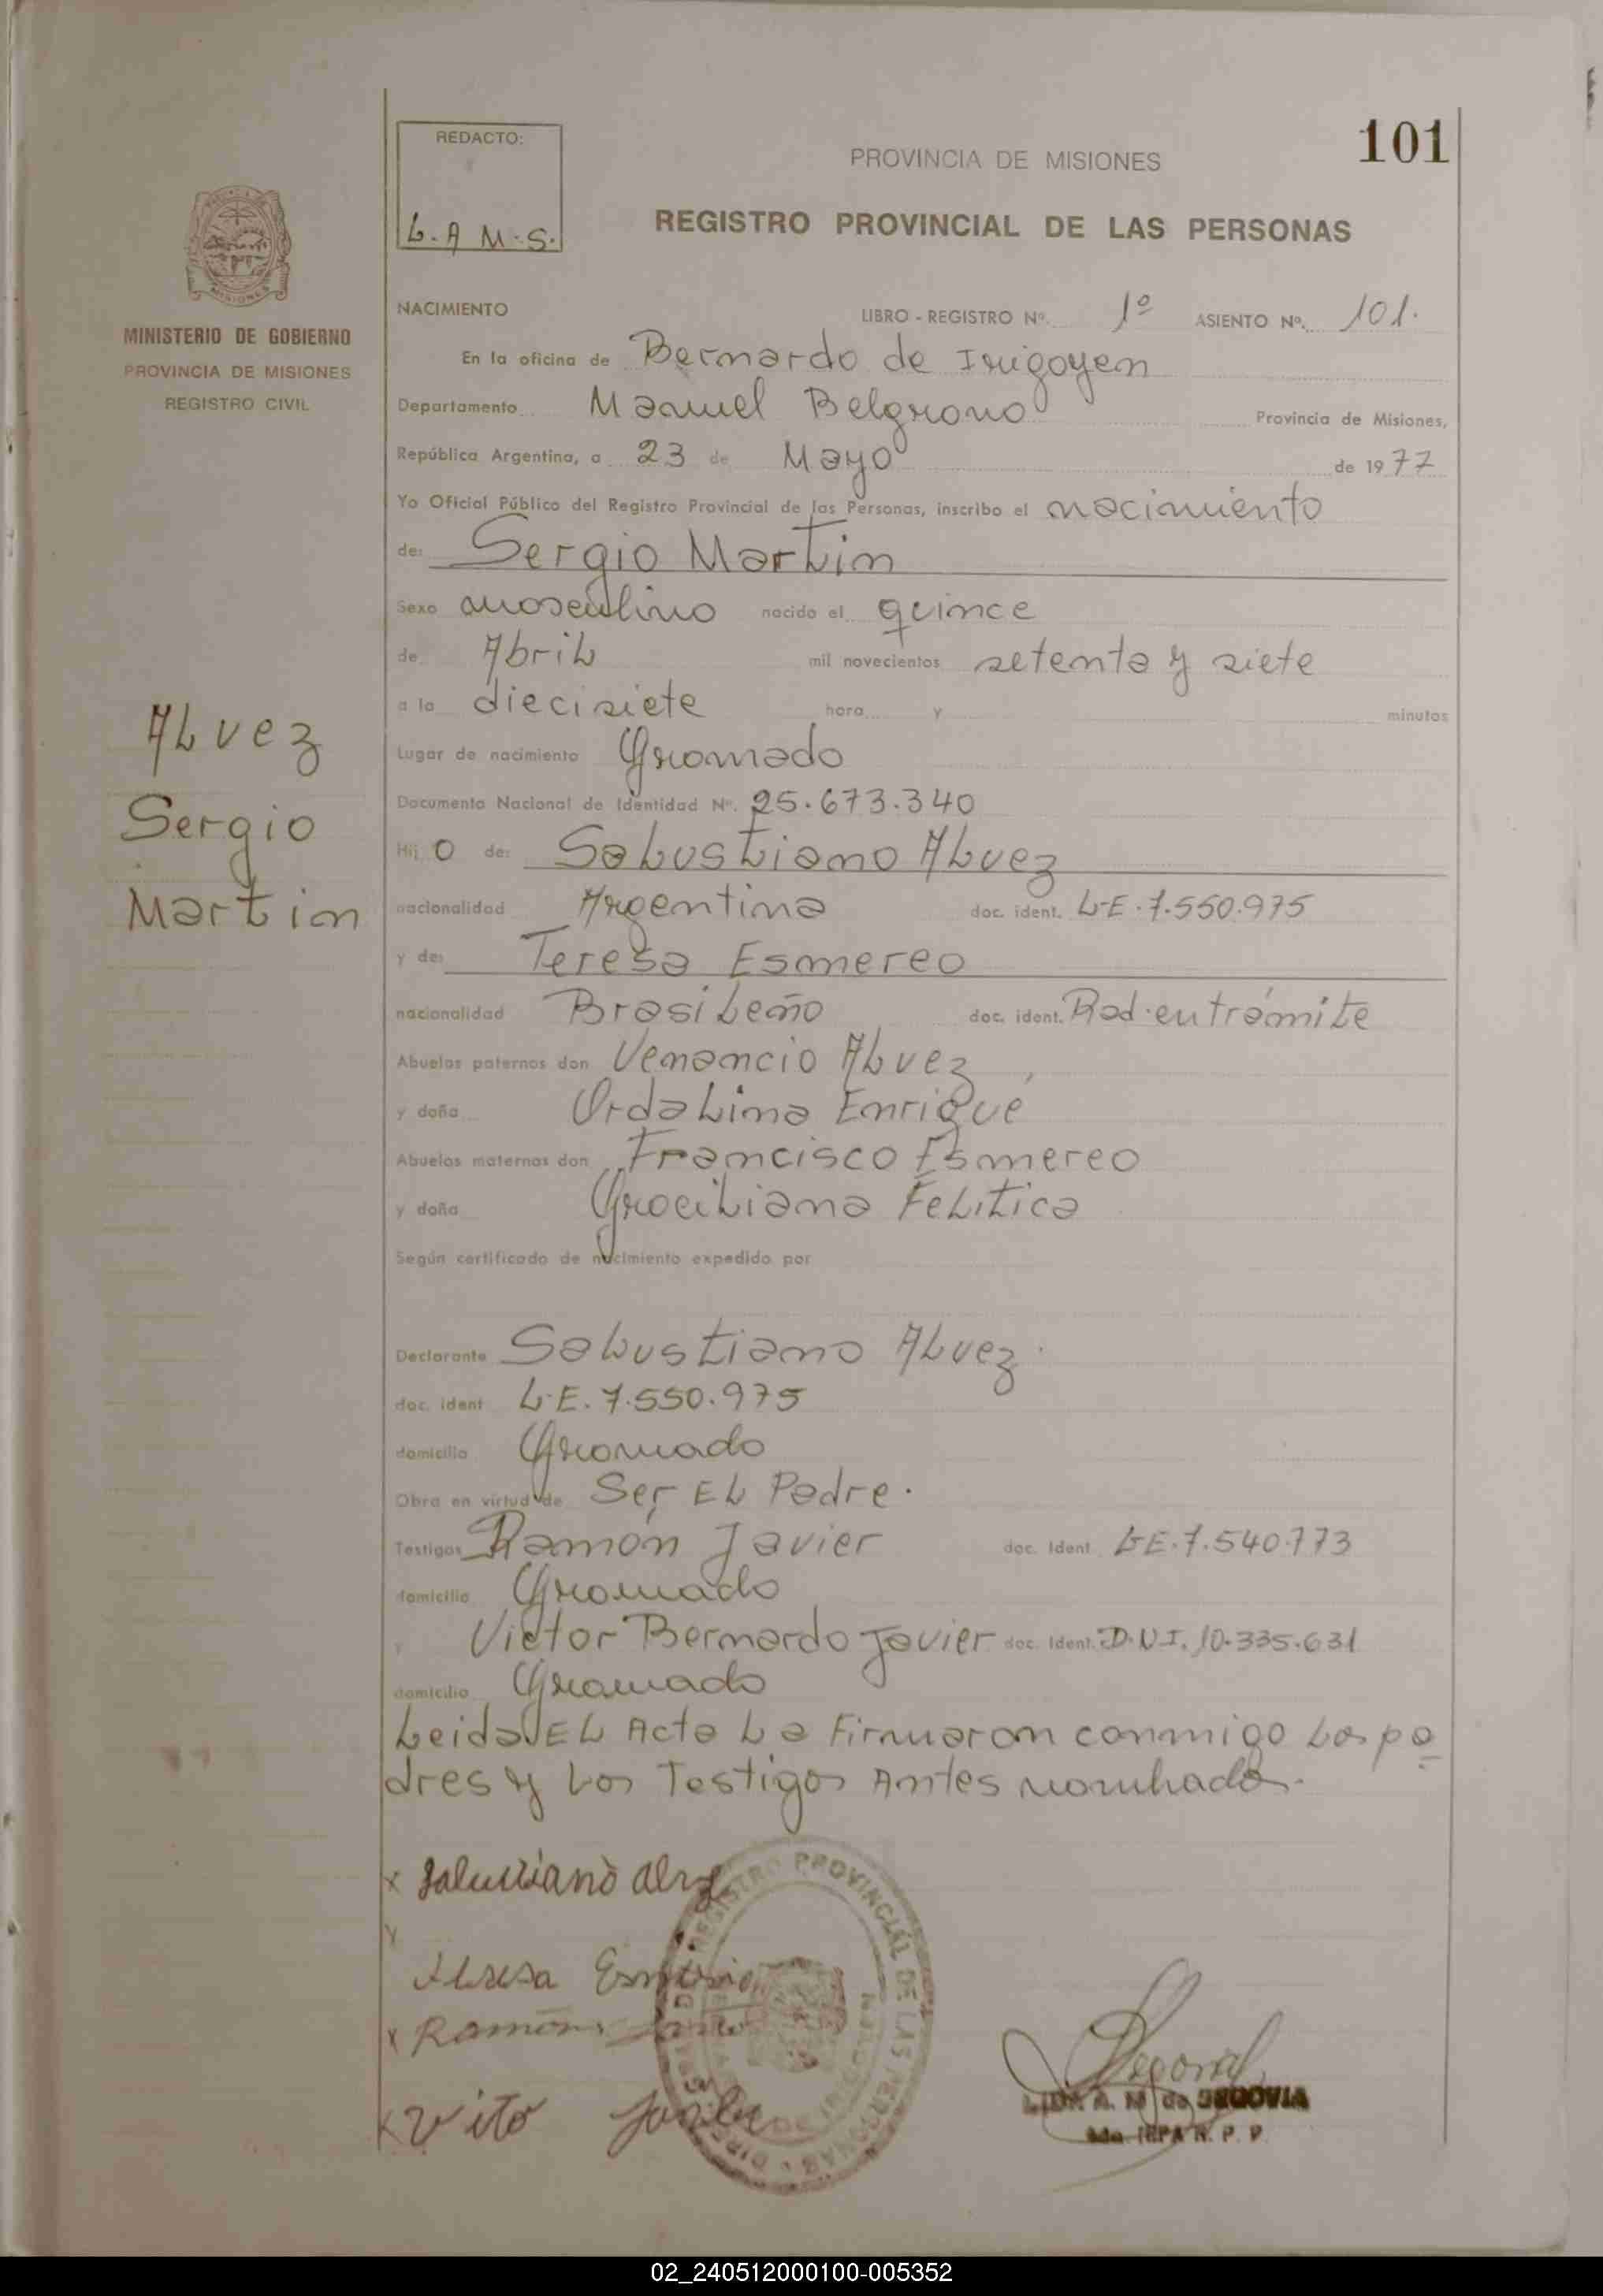 101
REDACTO:
L.A M.S.
PROVINCIA DE MISIONES
REGISTRO PROVINCIAL DE LAS PERSONAS
MINISTERIO DE GOBIERNO
PROVINCIA DE MISIONES
REGISTRO CIVIL
Alvez
Sergio
Martin
NACIMIENTO LIBRO - REGISTRO Nº. 1º ASIENTO Nº. 101.
En la oficina de Bernardo de Irigoyen
Departamento Manuel Belgrano Provincia de Misiones,
República Argentina, a 23 de Mayo de 1977
Yo Oficial Público del Registro Provincial de las Personas, inscribo el nacimiento
de: Sergio Martin
Sexo masculino nacido el quince
de Abril mil novecientos setenta y siete
a la diecisiete hora y minutos
Lugar de nacimiento Gramado
Documento Nacional de Identidad Nº. 25.673.340
Hij o de: Salustiano Alvez
nacionalidad Argentina doc. ident. L-E.7.550.975
y de: Teresa Esmereo
nacionalidad Brasileño doc. ident. Rad. en trámite
Abuelos paternos don Venancio Alvez
y doña Ordalina Enrique
Abuelos maternos don Francisco Esmereo
y doña Graciliana Felitica
Según certificado de nacimiento expedido por
Declarante Salustiano Alvez.
doc. ident L.E. 7.550.975
domicilio Gramado
Obra en virtud de Ser El Padre.
Testigos Ramón Javier doc. Ident. L.E.7.540.773
domicilio Gramado
y Victor Bernardo Javier doc. Ident. D.N.I. 10.335.631
domicilio Gramado
Leida El Acta La Firmaron conmigo Los pa
dres y Los Testigos Antes nombrados.
x Salustiano
Teresa
x Ramón
x Vito
REGISTRO PROVINCIAL DE LAS PERSONAS
LIDIA A. M de SEGOVIA
R. P. P.
02_240512000100-005352